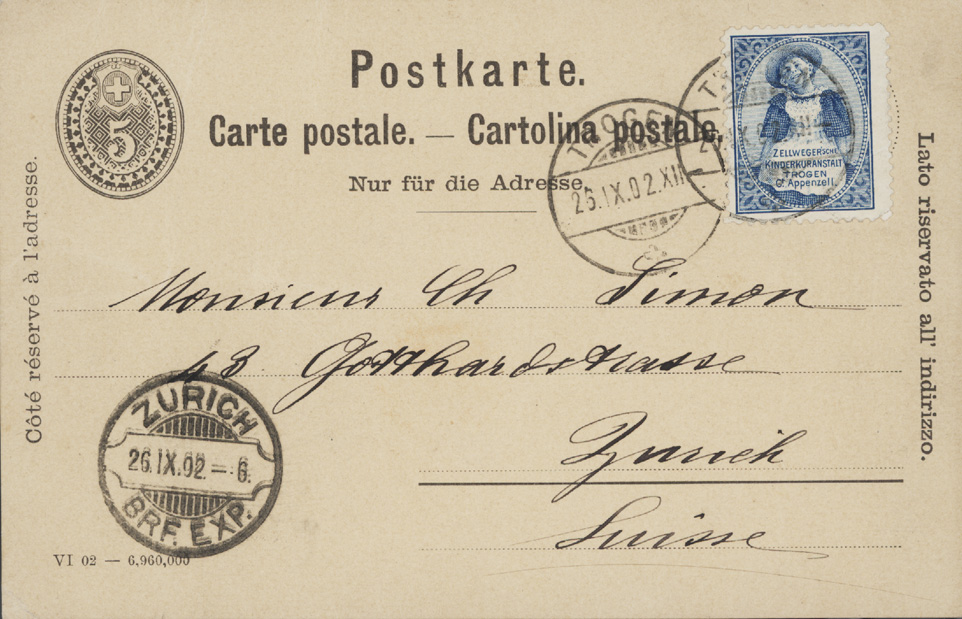 Postkarte.
Carte postale. — Cartolina postale.
Nur für die Adresse.
5
TROGEN
26.IX.02.XII
ZELLWEGER'sche
KINDERKURANSTALT
TROGEN
Ct. Appenzell.
Côté réservé à l'adresse.
Lato riservato all' indirizzo.
Monsieur Ch Simon
43 Gotthardstrasse
Zurich
Suisse
ZURICH
26.IX.02.–6.
BRF. EXP.
VI 02 — 6,960,000